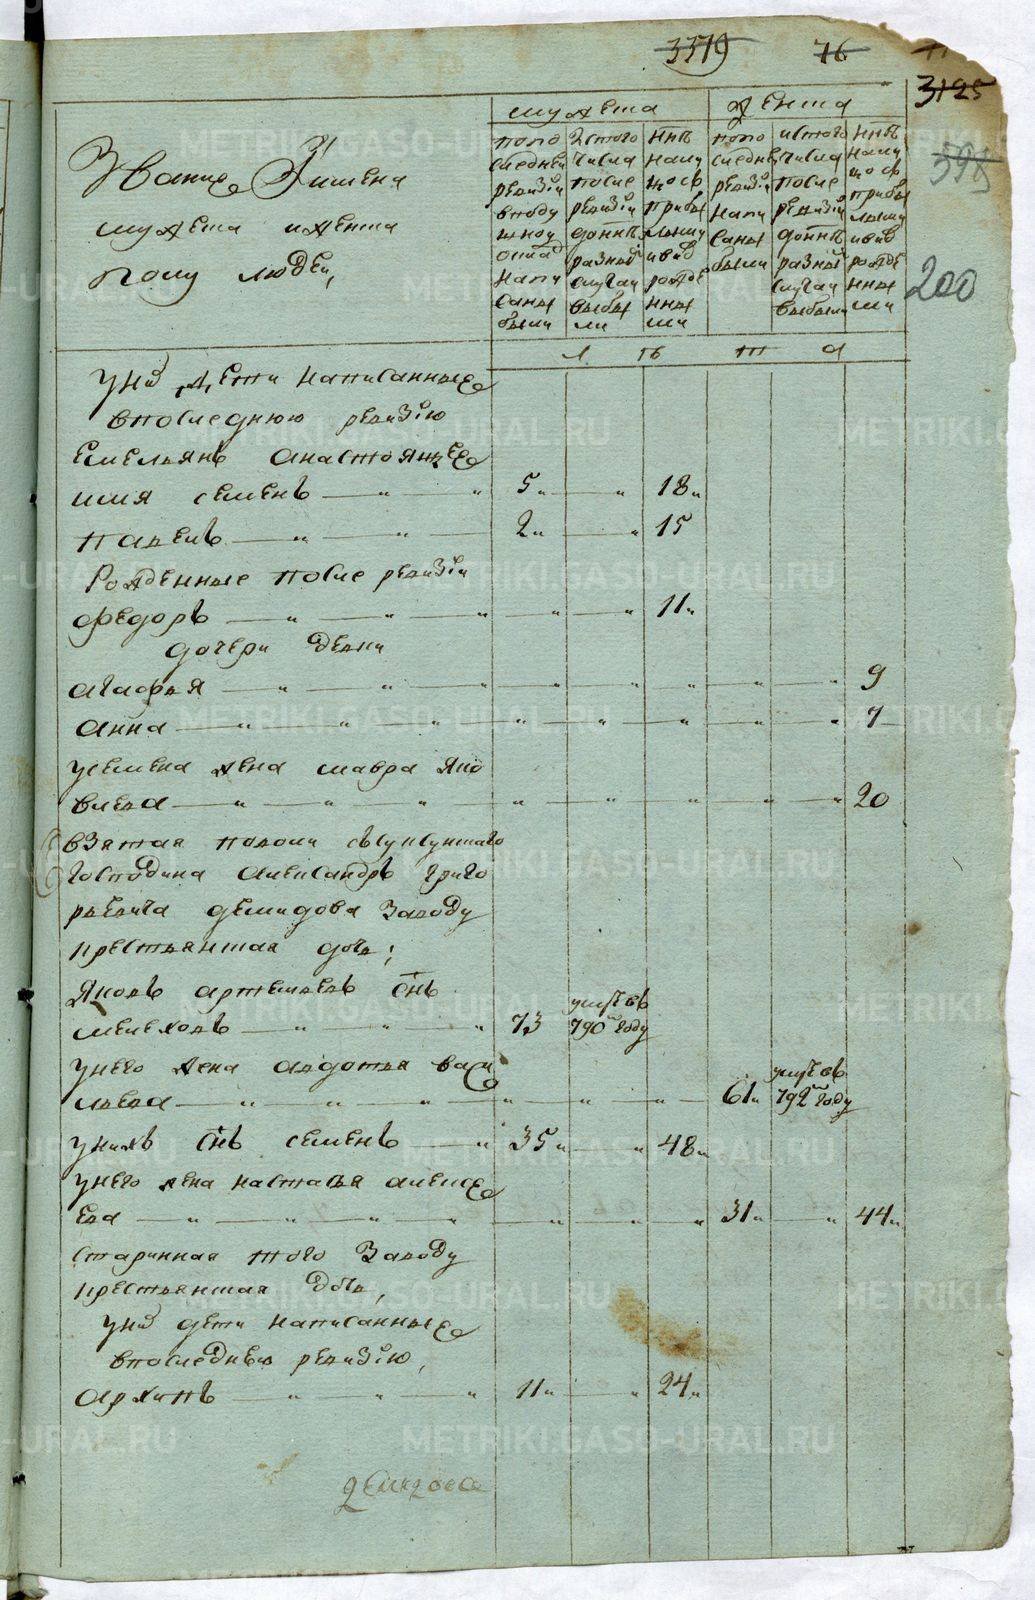 3379
76
3125
598
200
мужеска
женска
Звание Имена
мужеска и женска
полу людей,
по последней ревизии в подушной оклад написаны были
из того числа после ревизии до ныне разными случаи выбыли
ныне на лицо с прибылыми и вновь рожденными
по последней ревизии написаны были
ис того числа после ревизии до ныне разными случаи выбыли
ныне на лицо с прибылыми и вновь рожденными
лѣта
у них дети написанные
в последнюю ревизию
Емельянъ а настоящее
имя семенъ 5 18
павелъ 2 15
Рожденные после ревизии
федоръ 11
дочери девки
агафья 9
анна 7
у семена жена мавра яко
влева 20
взятая
господина александръ григо
рьевича демидова заводу
крестьянская дочь,
яковъ артемьевъ снъ
мелеховъ 73 умре въ 790м году
у него жена авдотья васи
льева 61 умре въ 792м году
у нихъ снъ семенъ 35 48
у него жена настасья алексе
ева 31 44
старинная того заводу
крестьянская дочь,
у них дети написанные
в последнюю ревизию,
архипъ 11 24